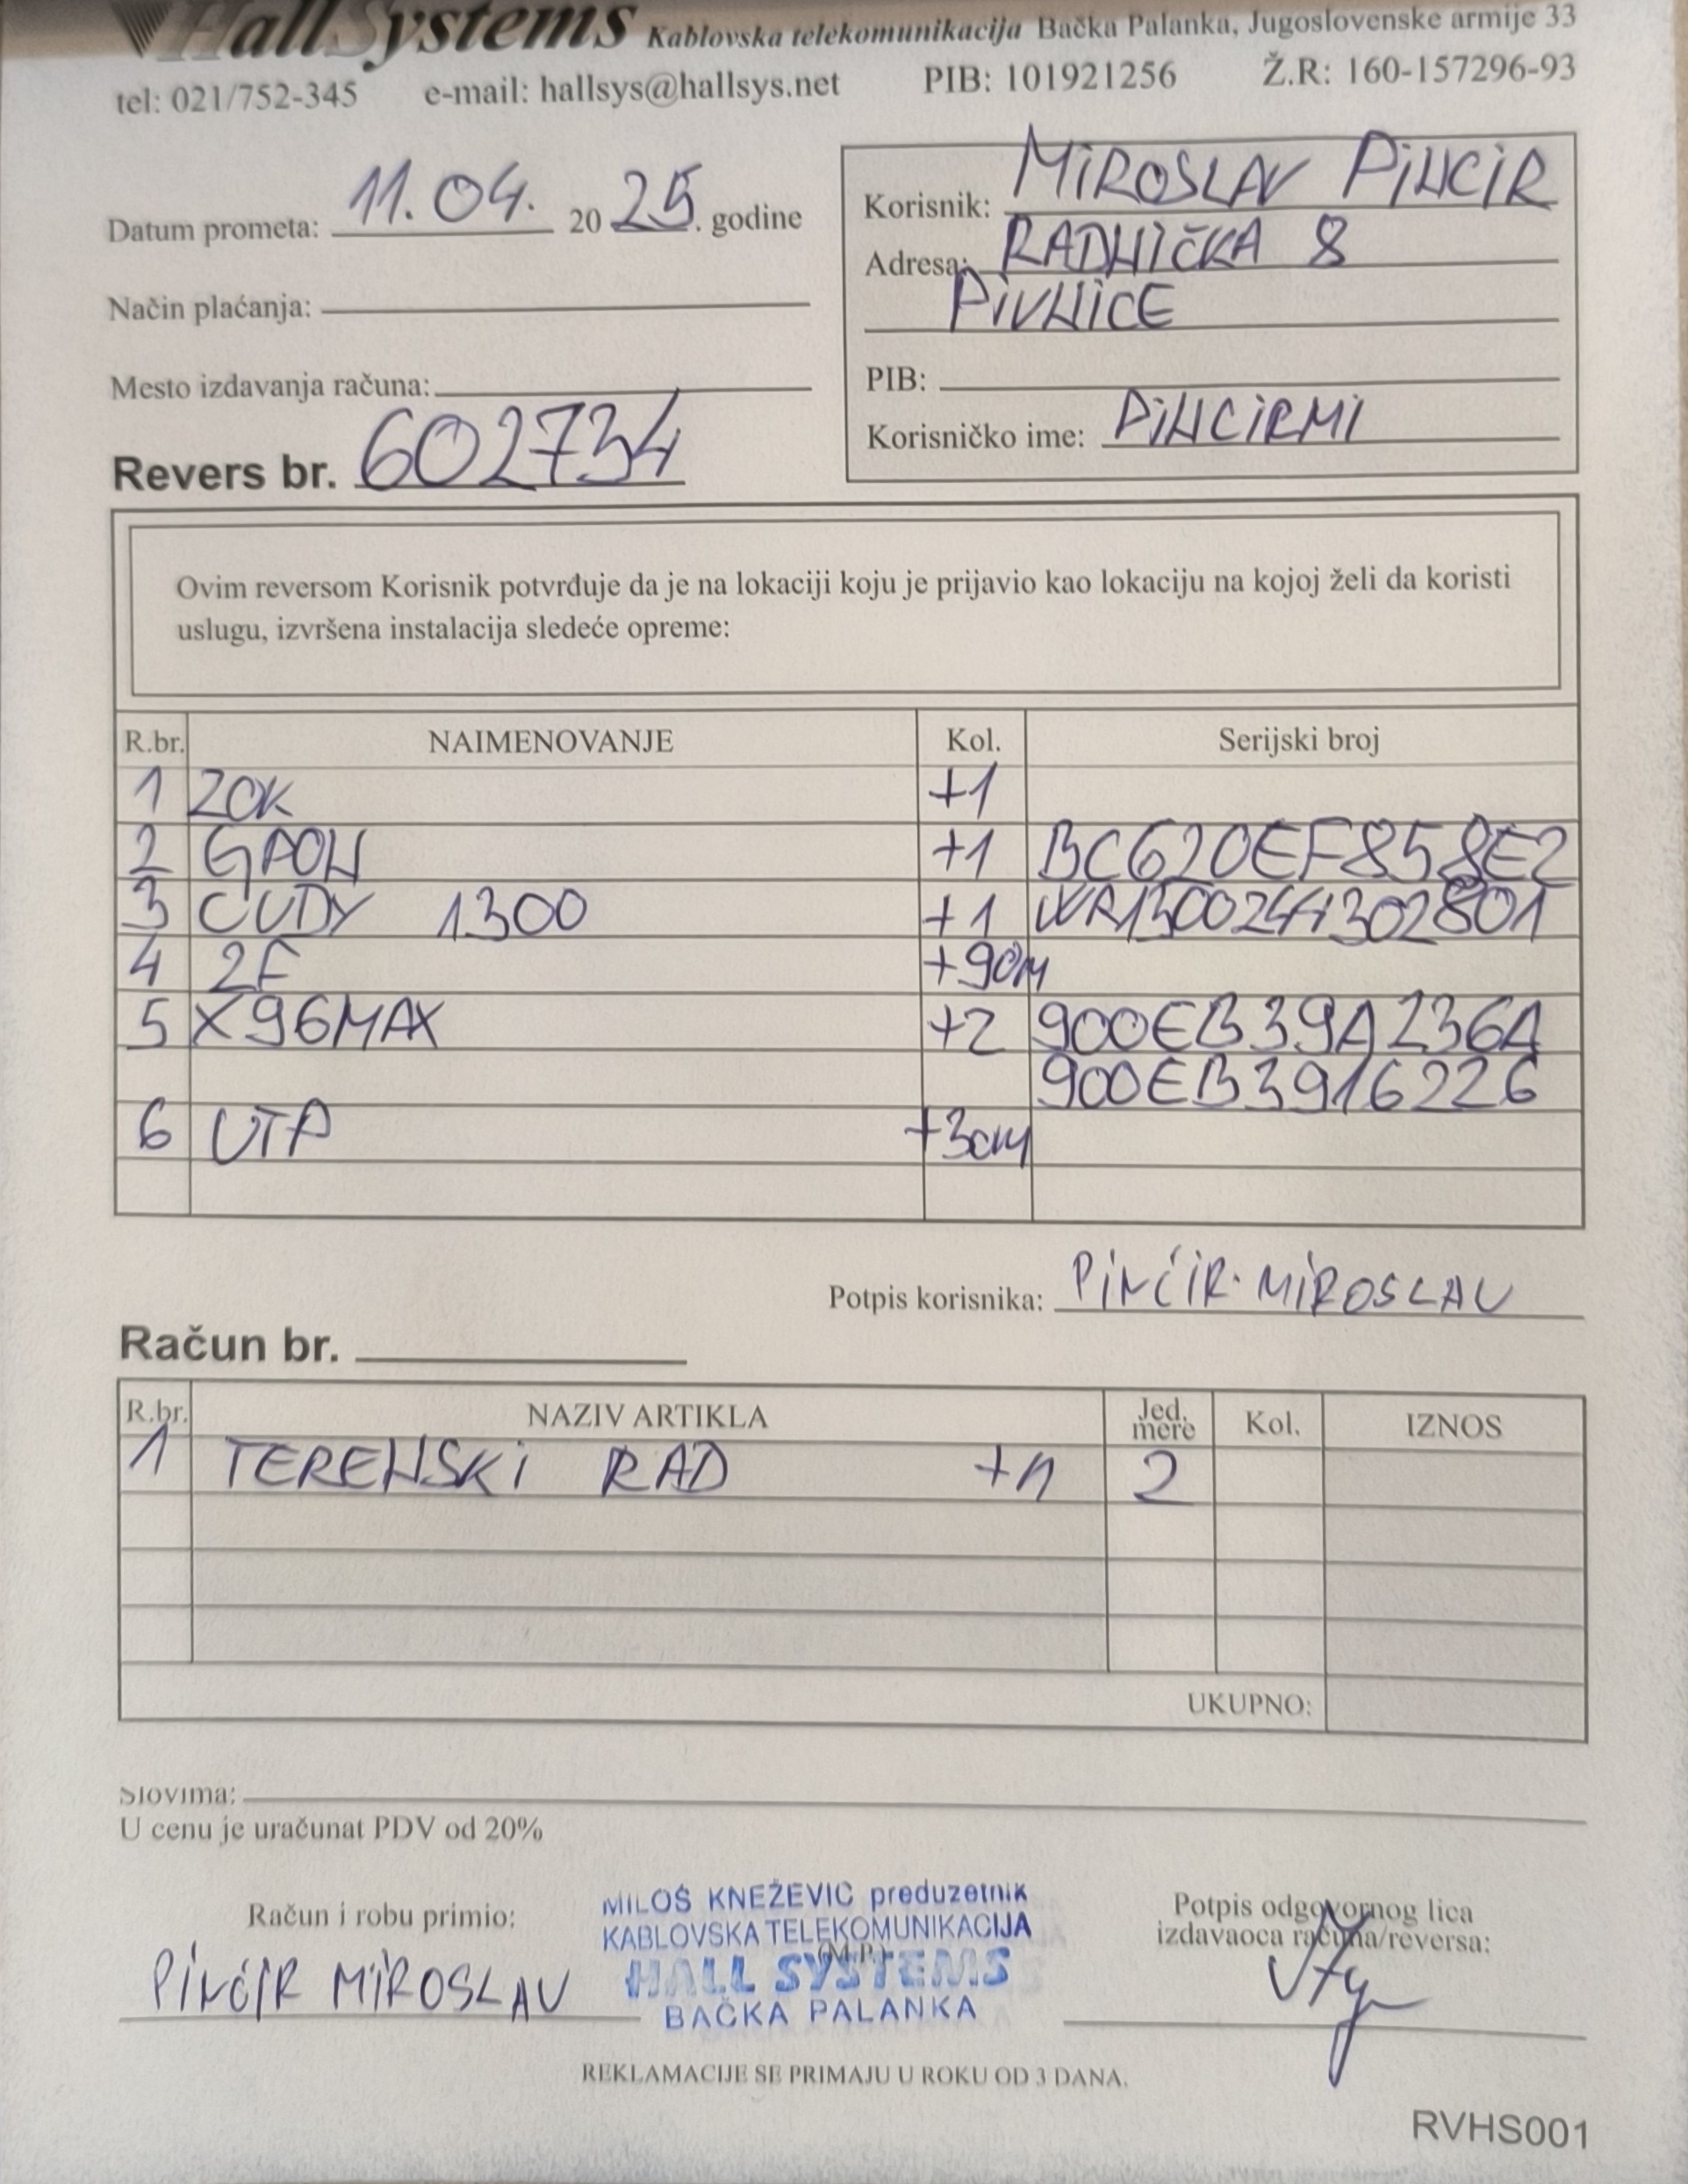 HallSystems Kablovska telekomunikacija Bačka Palanka, Jugoslovenske armije 33
tel: 021/752-345 e-mail: hallsys@hallsys.net PIB: 101921256 Ž.R: 160-157296-93
Datum prometa: 11.04. 20 25. godine
Način plaćanja:
Mesto izdavanja računa:
Revers br. 602734
Korisnik: MIROSLAV PINCIR
Adresa: RADNIČKA 8
PIVNICE
PIB:
Korisničko ime: PINCIRMI
Ovim reversom Korisnik potvrđuje da je na lokaciji koju je prijavio kao lokaciju na kojoj želi da koristi
uslugu, izvršena instalacija sledeće opreme:
R.br. NAIMENOVANJE Kol. Serijski broj
1 ZOK +1
2 GPON +1 BC620EF858E2
3 CUDY 1300 +1
4 2F +90m
5 X96MAX +2 900EB39A236A
900EB3916226
6 UTP +3cm
Potpis korisnika: PINČIR MIROSLAV
Račun br.
R.br. NAZIV ARTIKLA Jed. mere Kol. IZNOS
1 TERENSKI RAD +1 2
UKUPNO:
Slovima:
U cenu je uračunat PDV od 20%
Račun i robu primio:
PINČIR MIROSLAV
MILOŠ KNEŽEVIĆ preduzetnik
KABLOVSKA TELEKOMUNIKACIJA
(M.P.)
HALL SYSTEMS
BAČKA PALANKA
Potpis odgovornog lica
izdavaoca računa/reversa:
REKLAMACIJE SE PRIMAJU U ROKU OD 3 DANA.
RVHS001